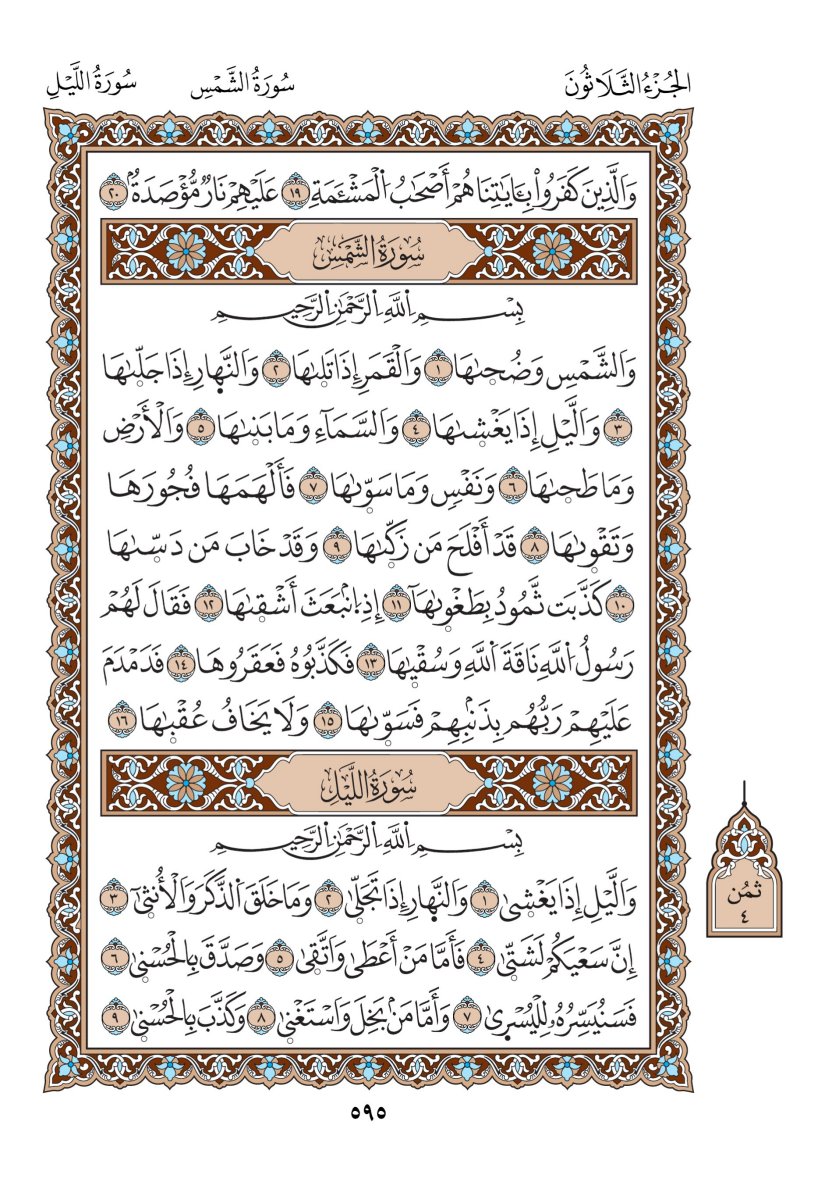 الجُزْءُ الثَّلَاثُونَ سُورَةُ الشَّمْسِ سُورَةُ اللَّيْلِ
وَالَّذِينَ كَفَرُواْ بِـَٔايَٰتِنَا هُمْ أَصْحَٰبُ الْمَشْـَٔمَةِ ١٩ عَلَيْهِمْ نَارٌ مُّؤْصَدَةُۢ ٢٠
سُورَةُ الشَّمْسِ
بِسْمِ اللَّهِ الرَّحْمَٰنِ الرَّحِيمِ
وَالشَّمْسِ وَضُحىٰهَا ١ وَالْقَمَرِ إِذَا تَلىٰهَا ٢ وَالنَّهارِ إِذَا جَلّىٰهَا
٣ وَالَّيْلِ إِذَا يَغْشىٰهَا ٤ وَالسَّمَآءِ وَمَا بَنىٰهَا ٥ وَالْأَرْضِ
وَمَا طَحىٰهَا ٦ وَنَفْسٍ وَمَا سَوّىٰهَا ٧ فَأَلْهَمَهَا فُجُورَهَا
وَتَقْوىٰهَا ٨ قَدْ أَفْلَحَ مَن زَكّىٰهَا ٩ وَقَدْ خَابَ مَن دَسّىٰهَا
١٠ كَذَّبَت ثَّمُودُ بِطَغْوىٰهَآ ١١ إِذِ انۢبَعَثَ أَشْقىٰهَا ١٢ فَقَالَ لَهُمْ
رَسُولُ اللَّهِ نَاقَةَ اللَّهِ وَسُقْيىٰهَا ١٣ فَكَذَّبُوهُ فَعَقَرُوهَا ١٤ فَدَمْدَمَ
عَلَيْهِمْ رَبُّهُم بِذَنۢبِهِمْ فَسَوّىٰهَا ١٥ وَلَا يَخَافُ عُقْبىٰهَا ١٦
سُورَةُ اللَّيْلِ
بِسْمِ اللَّهِ الرَّحْمَٰنِ الرَّحِيمِ
وَالَّيْلِ إِذَا يَغْشىٰ ١ وَالنَّهارِ إِذَا تَجَلّىٰ ٢ وَمَا خَلَقَ الذَّكَرَ وَالْأُنثىٰٓ ٣
إِنَّ سَعْيَكُمْ لَشَتّىٰ ٤ فَأَمَّا مَنْ أَعْطىٰ وَاتَّقىٰ ٥ وَصَدَّقَ بِالْحُسْنىٰ ٦
فَسَنُيَسِّرُهُۥ لِلْيُسْرىٰ ٧ وَأَمَّا مَنۢ بَخِلَ وَاسْتَغْنىٰ ٨ وَكَذَّبَ بِالْحُسْنىٰ ٩
ثمُن
٤
٥٩٥